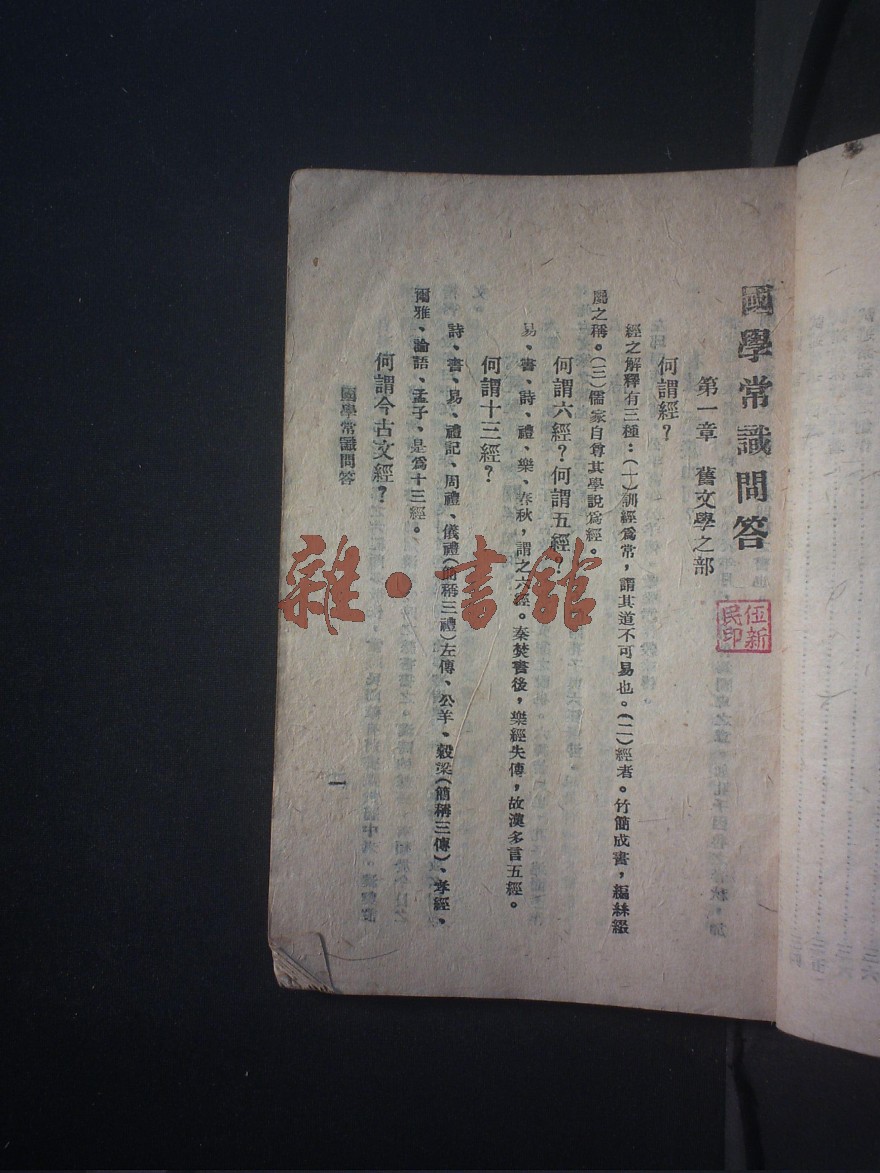 國學常識問答
第一章　舊文學之部
伍新民印
何謂經？
經之解釋有三種：(一)訓經爲常，謂其道不可易也。(二)經者。竹簡成書，編絲綴
屬之稱。(三)儒家自尊其學說爲經。
何謂六經？何謂五經？
易、書、詩、禮、樂、春秋，謂之六經。秦焚書後，樂經失傳，故漢多言五經。
何謂十三經？
詩、書、易、禮記、周禮、儀禮(簡稱三禮)左傳、公羊、穀梁(簡稱三傳)、孝經、
爾雅、論語、孟子、是爲十三經。
何謂今古文經？
國學常識問答
一
雜·書館